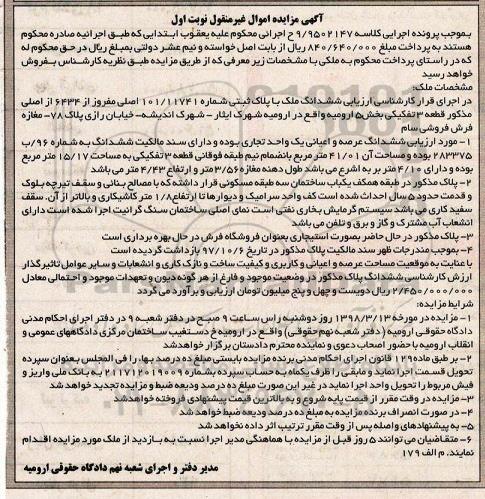 آگهی مزایده اموال غیرمنقول نوبت اول
بموجب پرونده اجرایی کلاسه ۹/۹۵۰۲۱۴۷ ح اجرائی محکوم علیه یعقوب ابتدایی که طبق اجرائیه صادره محکوم
هستند به پرداخت مبلغ ۸۴۰/۶۴۰/۰۰۰ ریال از بابت اصل خواسته و نیم عشر دولتی بمبلغ ریال در حق محکوم له
که در راستای پرداخت محکوم به ملکی با مشخصات زیر معرفی که از طریق مزایده طبق نظریه کارشناس بفروش
خواهد رسید
مشخصات ملک:
در اجرای قرار کارشناسی ارزیابی ششدانگ ملک با پلاک ثبتی شماره ۱۰۱/۱۱۷۴۱ اصلی مفروز از ۶۴۳۴ از اصلی
مذکور قطعه ۳ تفکیکی بخش ۵ ارومیه واقع در ارومیه شهرک ایثار - شهرک اندیشه- خیابان رازی پلاک ۷۸- مغازه
فرش فروشی سام
۱- مورد ارزیابی ششدانگ عرصه و اعیانی یک واحد تجاری بوده و دارای سند مالکیت ششدانگ به شماره ۹۶/ب
۲۸۳۳۷۵ بوده و مساحت آن ۴۱/۰۱ متر مربع بانضمام نیم طبقه فوقانی قطعه ۳ تفکیکی به مساحت ۱۵/۱۷ متر مربع
بوده و دارای ۴/۱۰ متر بر به اشرع می باشد طول دهنه مغازه ۳/۵۶ متر و ارتفاع ۴/۴۳ متر می باشد
۲- پلاک مذکور در طبقه همکف یکباب ساختمان سه طبقه مسکونی قرار داشته که با مصالح بنائی و سقف تیرچه بلوک
و قدمت حدود ۵ سال احداث شده است کف واحد سرامیک و دیوارها تا ارتفاع ۱/۸ متر کاشیکاری و بالاتر از آن. سقف
سفید کاری می باشد سیستم گرمایش بخاری نفتی است نمای اصلی ساختمان سنگ گرانیت اجرا شده است دارای
انشعاب آب مشترک و گاز و برق و تلفن می باشد
۳- پلاک مذکور در حال حاضر بصورت استیجاری بعنوان فروشگاه فرش در حال بهره برداری است
۴- بموجب مندرجات ظهر سند مالکیت پلاک مذکور در تاریخ ۹۷/۱۰/۶ بازداشت گردیده است
با عنایت به موقعیت مساحت عرصه و اعیانی و کاربری و کیفیت ساخت و نازک کاری و انشعابات و سایر عوامل تاثیرگذار
ارزش کارشناسی ششدانگ پلاک مذکور در وضعیت موجود و فارغ از هر گونه دیون و تعهدات موجود و احتمالی معادل
۲/۴۵۰/۰۰۰/۰۰۰ ریال دویست و چهل و پنج میلیون تومان ارزیابی و برآورد می گردد
شرایط مزایده:
۱- مزایده در مورخه ۱۳۹۸/۳/۱۳ روز دوشنبه راس ساعت ۹ صبح در دفتر شعبه ۹ در دفتر اجرای احکام مدنی
دادگاه حقوقی ارومیه (دفتر شعبه نهم حقوقی) واقع در ارومیه خ دستغیب ساختمان مرکزی دادگاههای عمومی و
انقلاب ارومیه با حضور اصحاب دعوی و نماینده محترم دادستان برگزار خواهد شد
۲- بر طبق ماده ۱۲۹ قانون اجرای احکام مدنی برنده مزایده بایستی مبلغ ده درصد بها را فی المجلس بعنوان سپرده
تحویل قسمت اجرا نماید و مابقی را ظرف یکماه به حساب سپرده بشماره ۲۱۷۱۲۰۱۹۰۰۹۰ به بانک ملی واریز و
فیش مربوط را تحویل واحد اجرا نماید در غیر این صورت مبلغ ده درصد ودیعه ضبط و مزایده تجدید خواهد شد
۳- مزایده در وقت مقرر از قیمت پایه شروع و به بالاترین قیمت پیشنهادی فروخته خواهد شد
۴- در صورت انصراف برنده مزایده به مبلغ ده درصد ودیعه ضبط خواهد شد
۵- به پیشنهادهای واصله پس از وقت مقرر ترتیب اثر داده نخواهد شد
۶- متقاضیان می توانند ۵ روز قبل از مزایده با هماهنگی مدیر اجرا نسبت به بازدید از ملک مورد مزایده اقدام
نمایند. م الف ۱۷۹
مدیر دفتر و اجرای شعبه نهم دادگاه حقوقی ارومیه